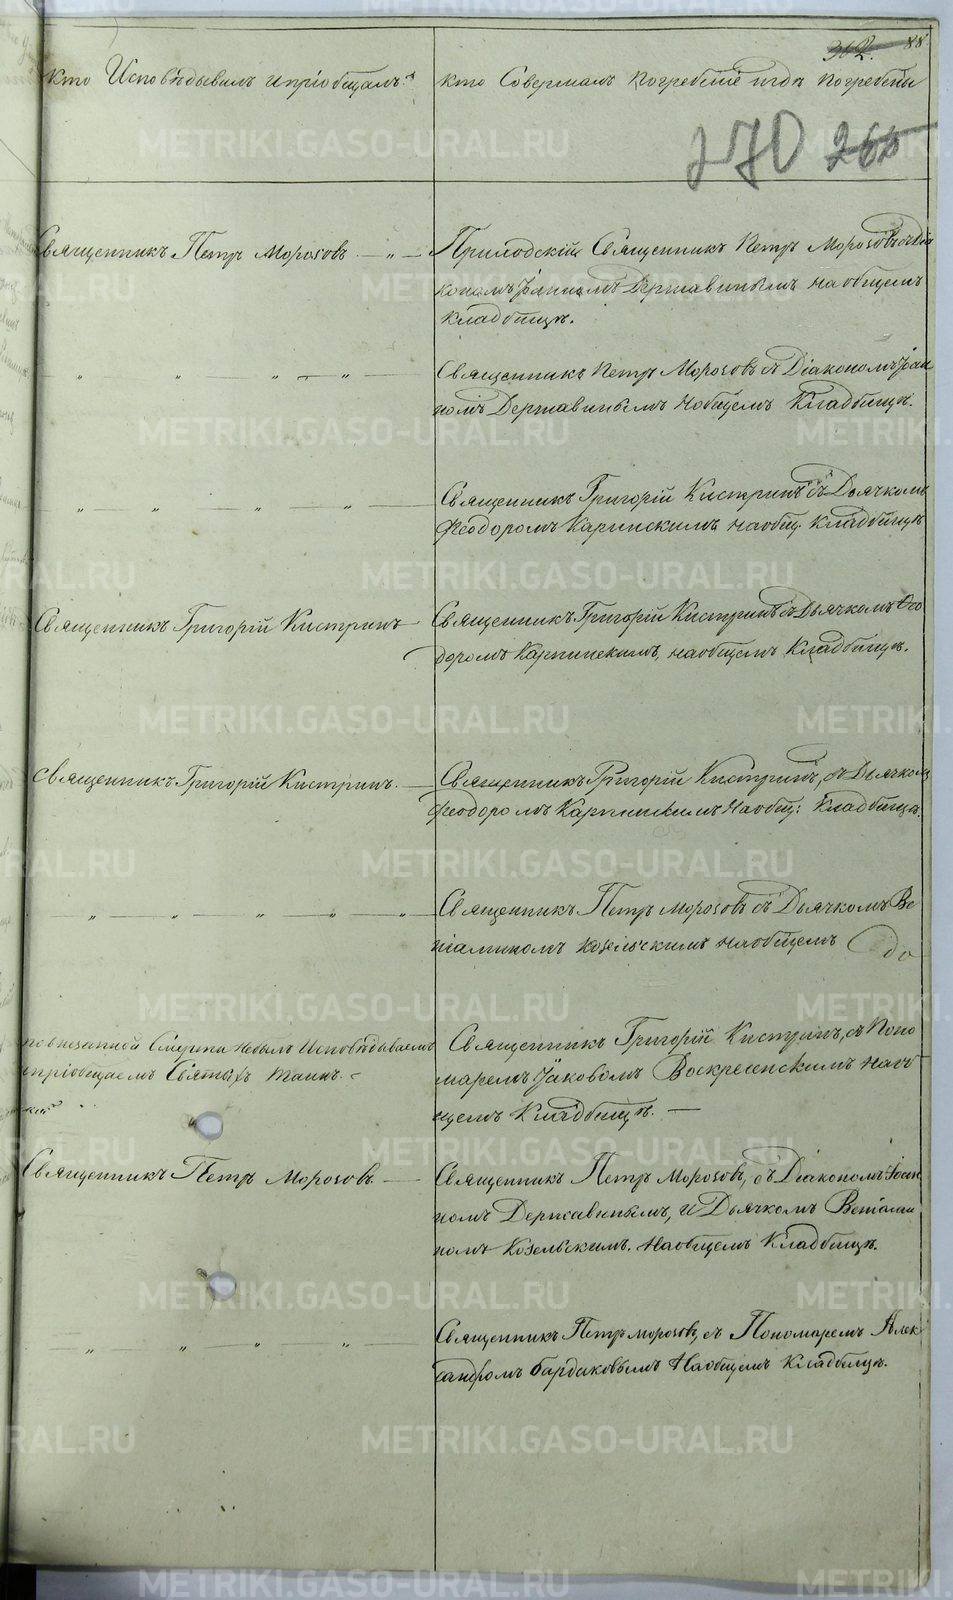 302. 88
Кто Исповѣдывалъ и пріобщалъ.
Кто Совершалъ погребеніе и гдѣ погребены
270 266
Священникъ Петръ Морозовъ — „ —
Приходскій Священникъ Петръ Морозовъ съ Діа
кономъ Іоанномъ Державинымъ на общемъ
кладбищѣ.
„ „ „ „
Священникъ Петръ Морозовъ съ Діакономъ Іоан
номъ Державинымъ на общемъ Кладбищѣ.
„ „ „ „
Священникъ Григорій Кистринъ съ Дьячкомъ
Феодоромъ Карпинскимъ на общ. кладбищѣ
Священникъ Григорій Кистринъ
Священникъ Григорій Кистринъ съ Дьячкомъ Фео
доромъ Карпинскимъ, на общемъ Кладбищѣ.
Священникъ Григорій Кистринъ. —
Священникъ Григорій Кистринъ, съ Дьячкомъ
Феодоромъ Карпинскимъ На общ: Кладбищѣ.
„ „ „ „ „
Священникъ Петръ Морозовъ съ Дьячкомъ Ве
ніаминомъ Козельскимъ на общемъ
по внезапной Смерти небылъ Исповѣдываемъ
и пріобщаемъ Святыхъ Таинъ. -
Священникъ Григорій Кистринъ, съ Поно
маремъ Іаковомъ Воскресенскимъ На об
щемъ Кладбищѣ. —
Священникъ Петръ Морозовъ —
Священникъ Петръ Морозовъ, съ Діакономъ Іоан
номъ Державинымъ, и Дьячкомъ Веніами
номъ Козельскимъ. На общемъ Кладбищѣ.
„ „ „ „
Священникъ Петръ Морозовъ, съ Пономаремъ Алек
сандромъ Бардаковымъ На общемъ Кладбищѣ.
METRIKI.GASO-URAL.RU